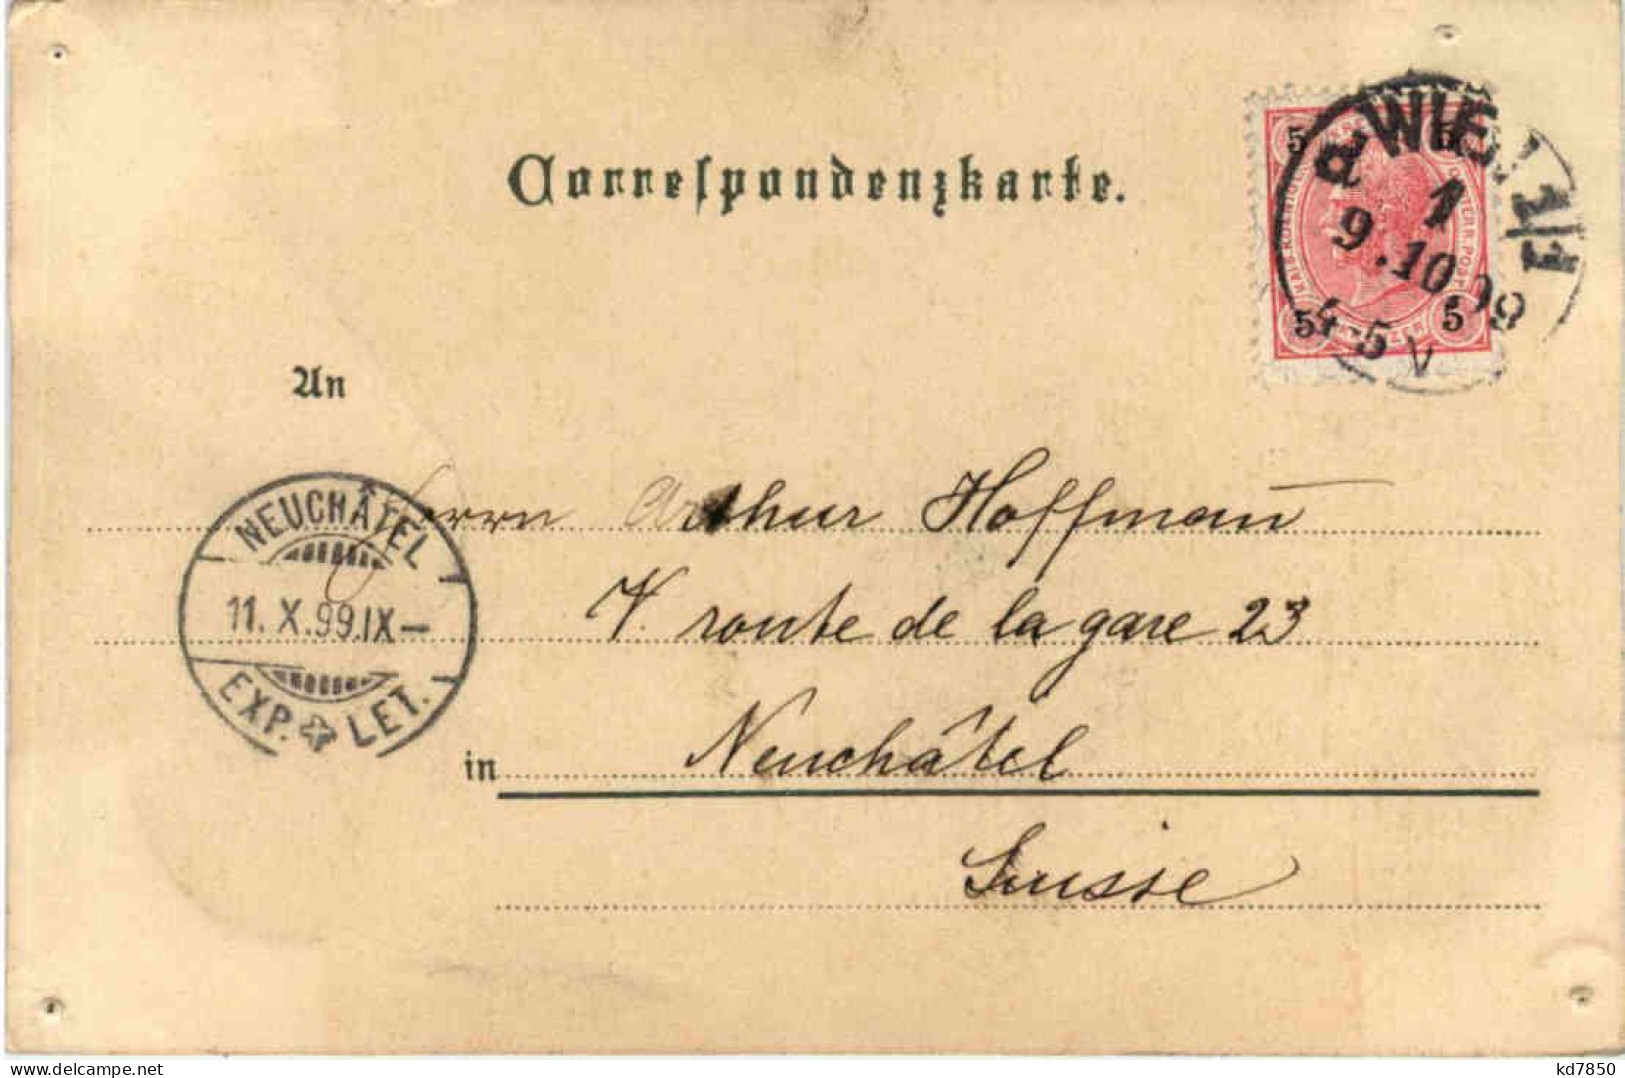 Correspondenzkarte.
WIEN 1/1
1
9.10.99
4-5 V
5 5
KAIS. KÖNIGL. ÖSTERR. POST
5 5
An
Herrn Arthur Hoffmann
NEUCHÂTEL
11.X.99.IX–
EXP. LET.
V. route de la gare 23
in Neuchâtel
Suisse
kd7850